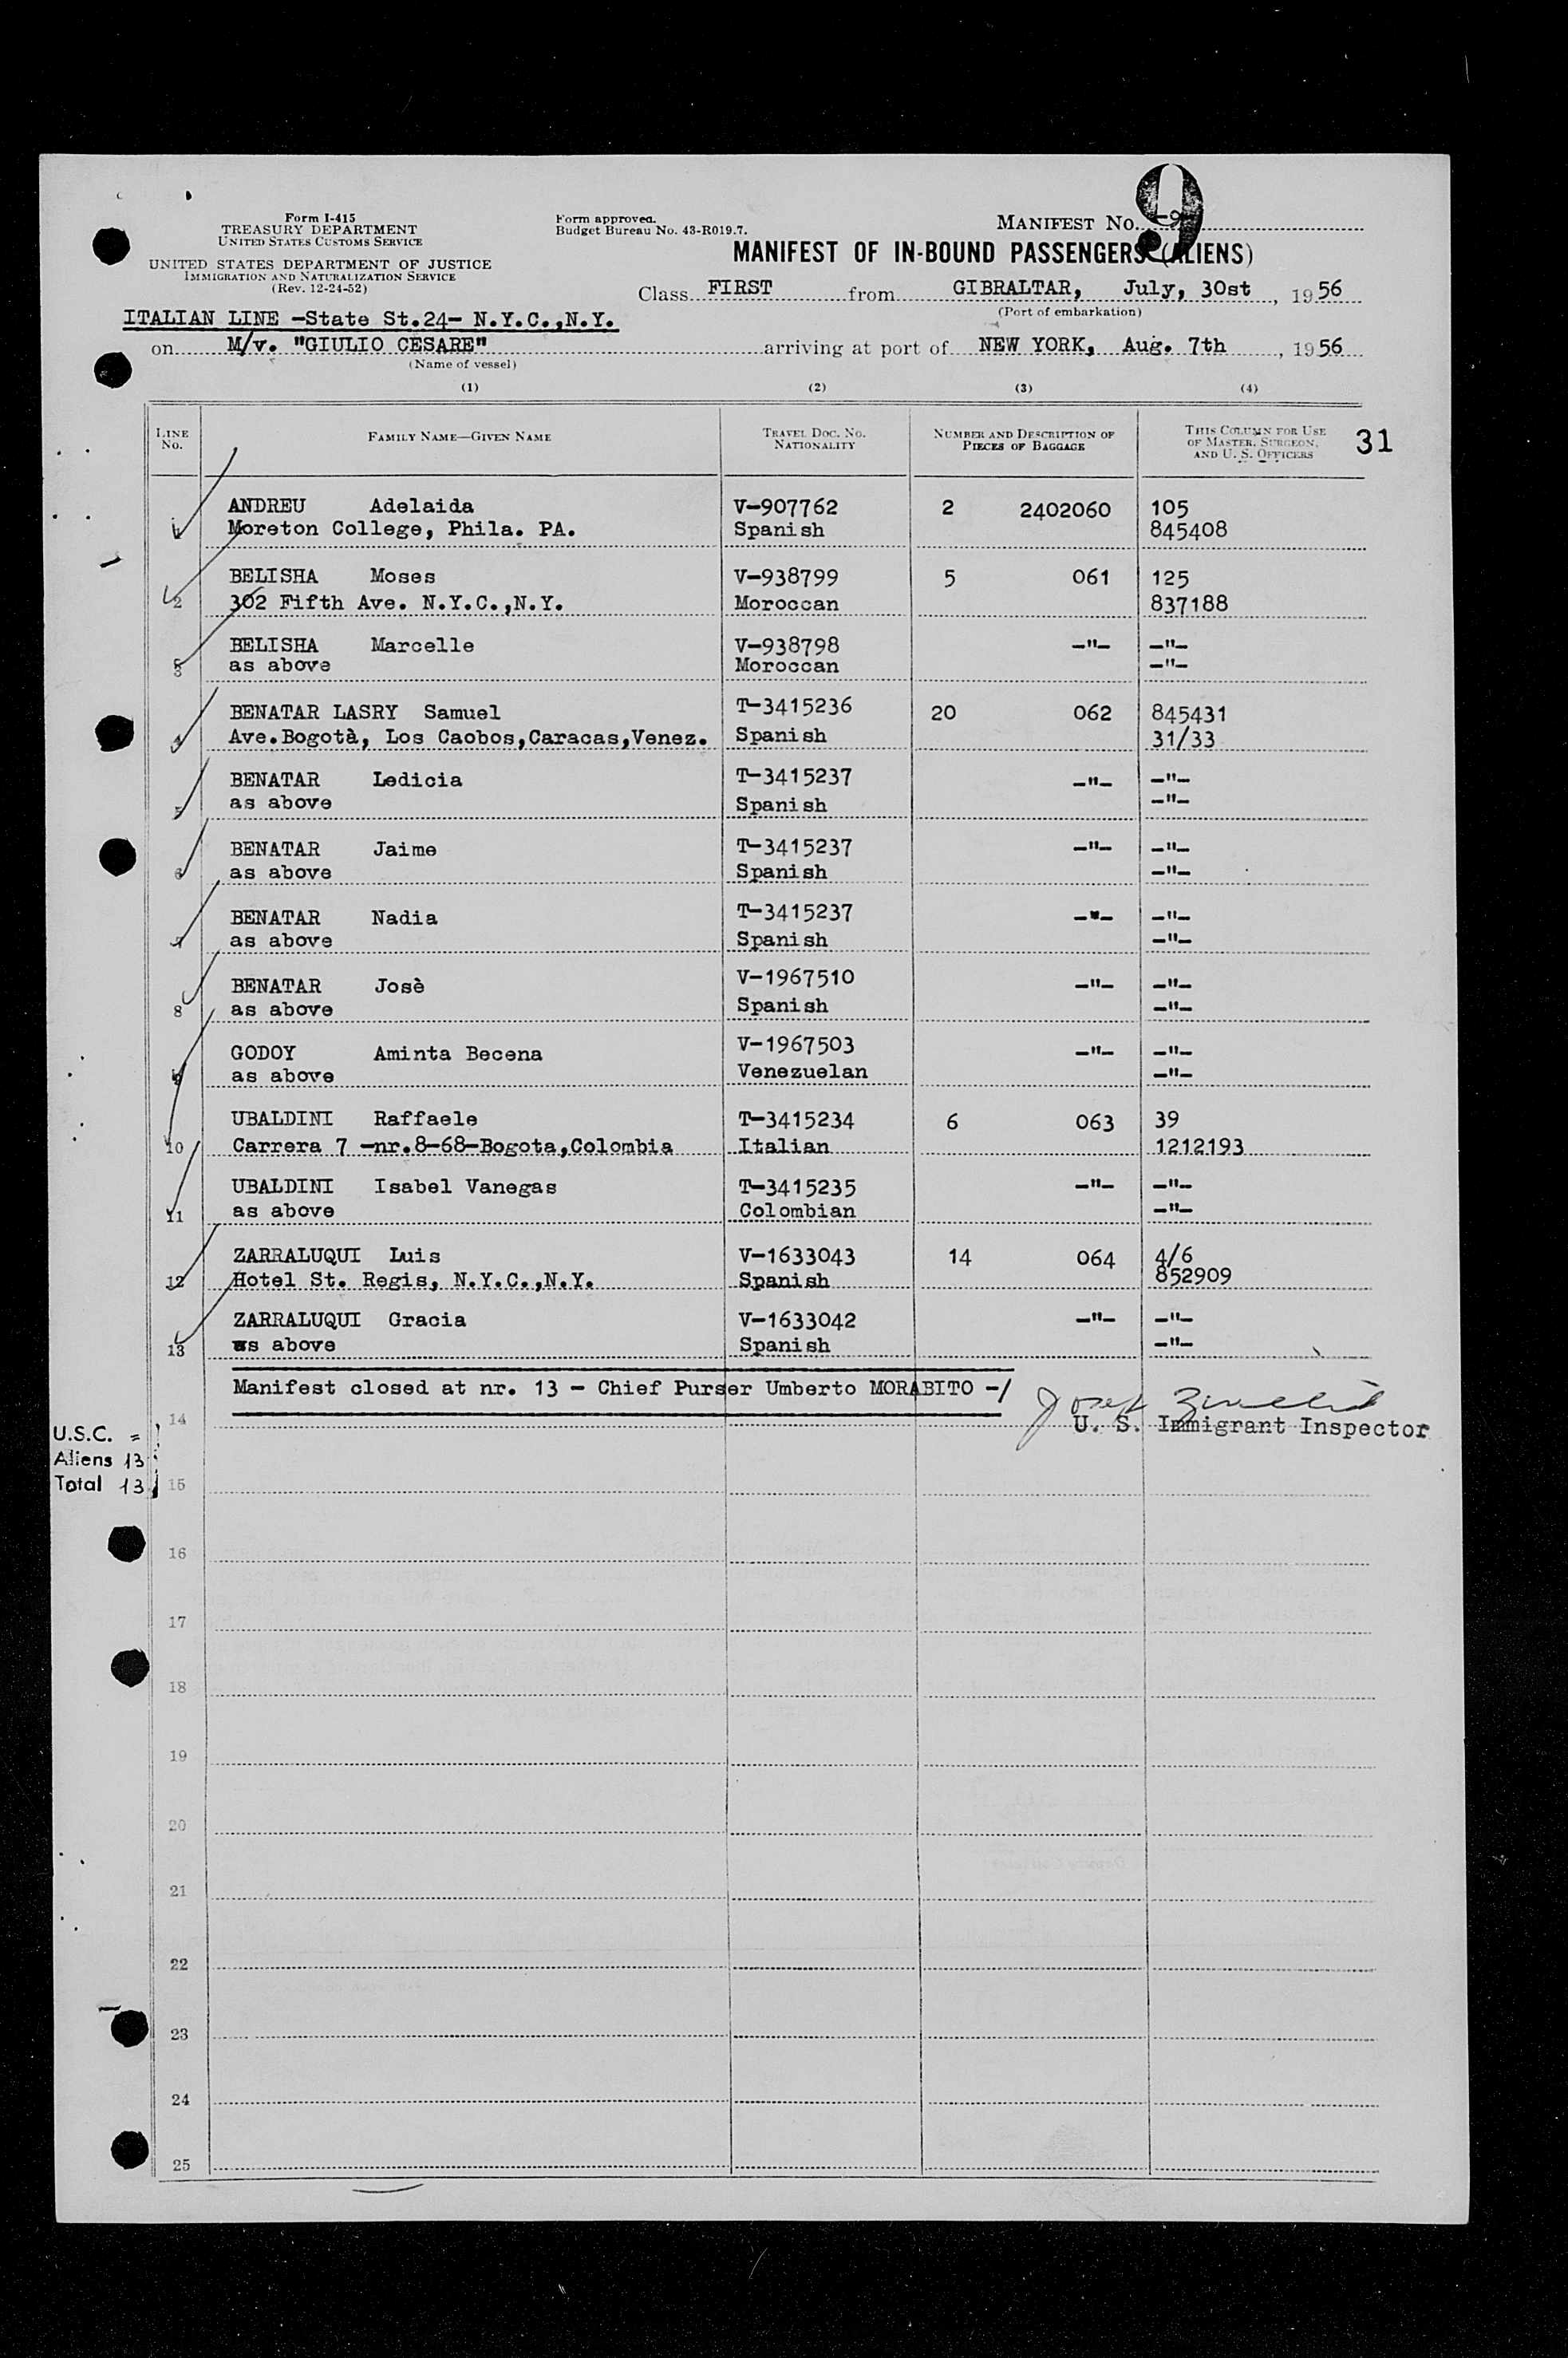 Form I-415
TREASURY DEPARTMENT
UNITED STATES CUSTOMS SERVICE
UNITED STATES DEPARTMENT OF JUSTICE
IMMIGRATION AND NATURALIZATION SERVICE
(Rev. 12-24-52)
Form approved.
Budget Bureau No. 43-R019.7.
MANIFEST No. 9
MANIFEST OF IN-BOUND PASSENGERS (ALIENS)
Class FIRST from GIBRALTAR, July, 30st, 1956
(Port of embarkation)
ITALIAN LINE -State St.24- N.Y.C.,N.Y.
on M/v. "GIULIO CESARE" arriving at port of NEW YORK, Aug. 7th, 1956
(Name of vessel)
(1) (2) (3) (4)
LINE No. FAMILY NAME—GIVEN NAME TRAVEL DOC. NO. NATIONALITY NUMBER AND DESCRIPTION OF PIECES OF BAGGAGE THIS COLUMN FOR USE OF MASTER, SURGEON, AND U. S. OFFICERS 31
ANDREU Adelaida V-907762 2 2402060 105
1 Moreton College, Phila. PA. Spanish 845408
BELISHA Moses V-938799 5 061 125
2 302 Fifth Ave. N.Y.C.,N.Y. Moroccan 837188
BELISHA Marcelle V-938798 -"- -"-
3 as above Moroccan -"-
BENATAR LASRY Samuel T-3415236 20 062 845431
4 Ave.Bogotà, Los Caobos,Caracas,Venez. Spanish 31/33
BENATAR Ledicia T-3415237 -"- -"-
5 as above Spanish -"-
BENATAR Jaime T-3415237 -"- -"-
6 as above Spanish -"-
BENATAR Nadia T-3415237 -"- -"-
7 as above Spanish -"-
BENATAR Josè V-1967510 -"- -"-
8 as above Spanish -"-
GODOY Aminta Becena V-1967503 -"- -"-
9 as above Venezuelan -"-
UBALDINI Raffaele T-3415234 6 063 39
10 Carrera 7 -nr.8-68-Bogota,Colombia Italian 1212193
UBALDINI Isabel Vanegas T-3415235 -"- -"-
11 as above Colombian -"-
ZARRALUQUI Luis V-1633043 14 064 4/6
12 Hotel St. Regis, N.Y.C.,N.Y. Spanish 852909
ZARRALUQUI Gracia V-1633042 -"- -"-
13 as above Spanish -"-
Manifest closed at nr. 13 - Chief Purser Umberto MORABITO -/
14 U. S. Immigrant Inspector
U.S.C. =
Aliens 13
Total 13
15
16
17
18
19
20
21
22
23
24
25